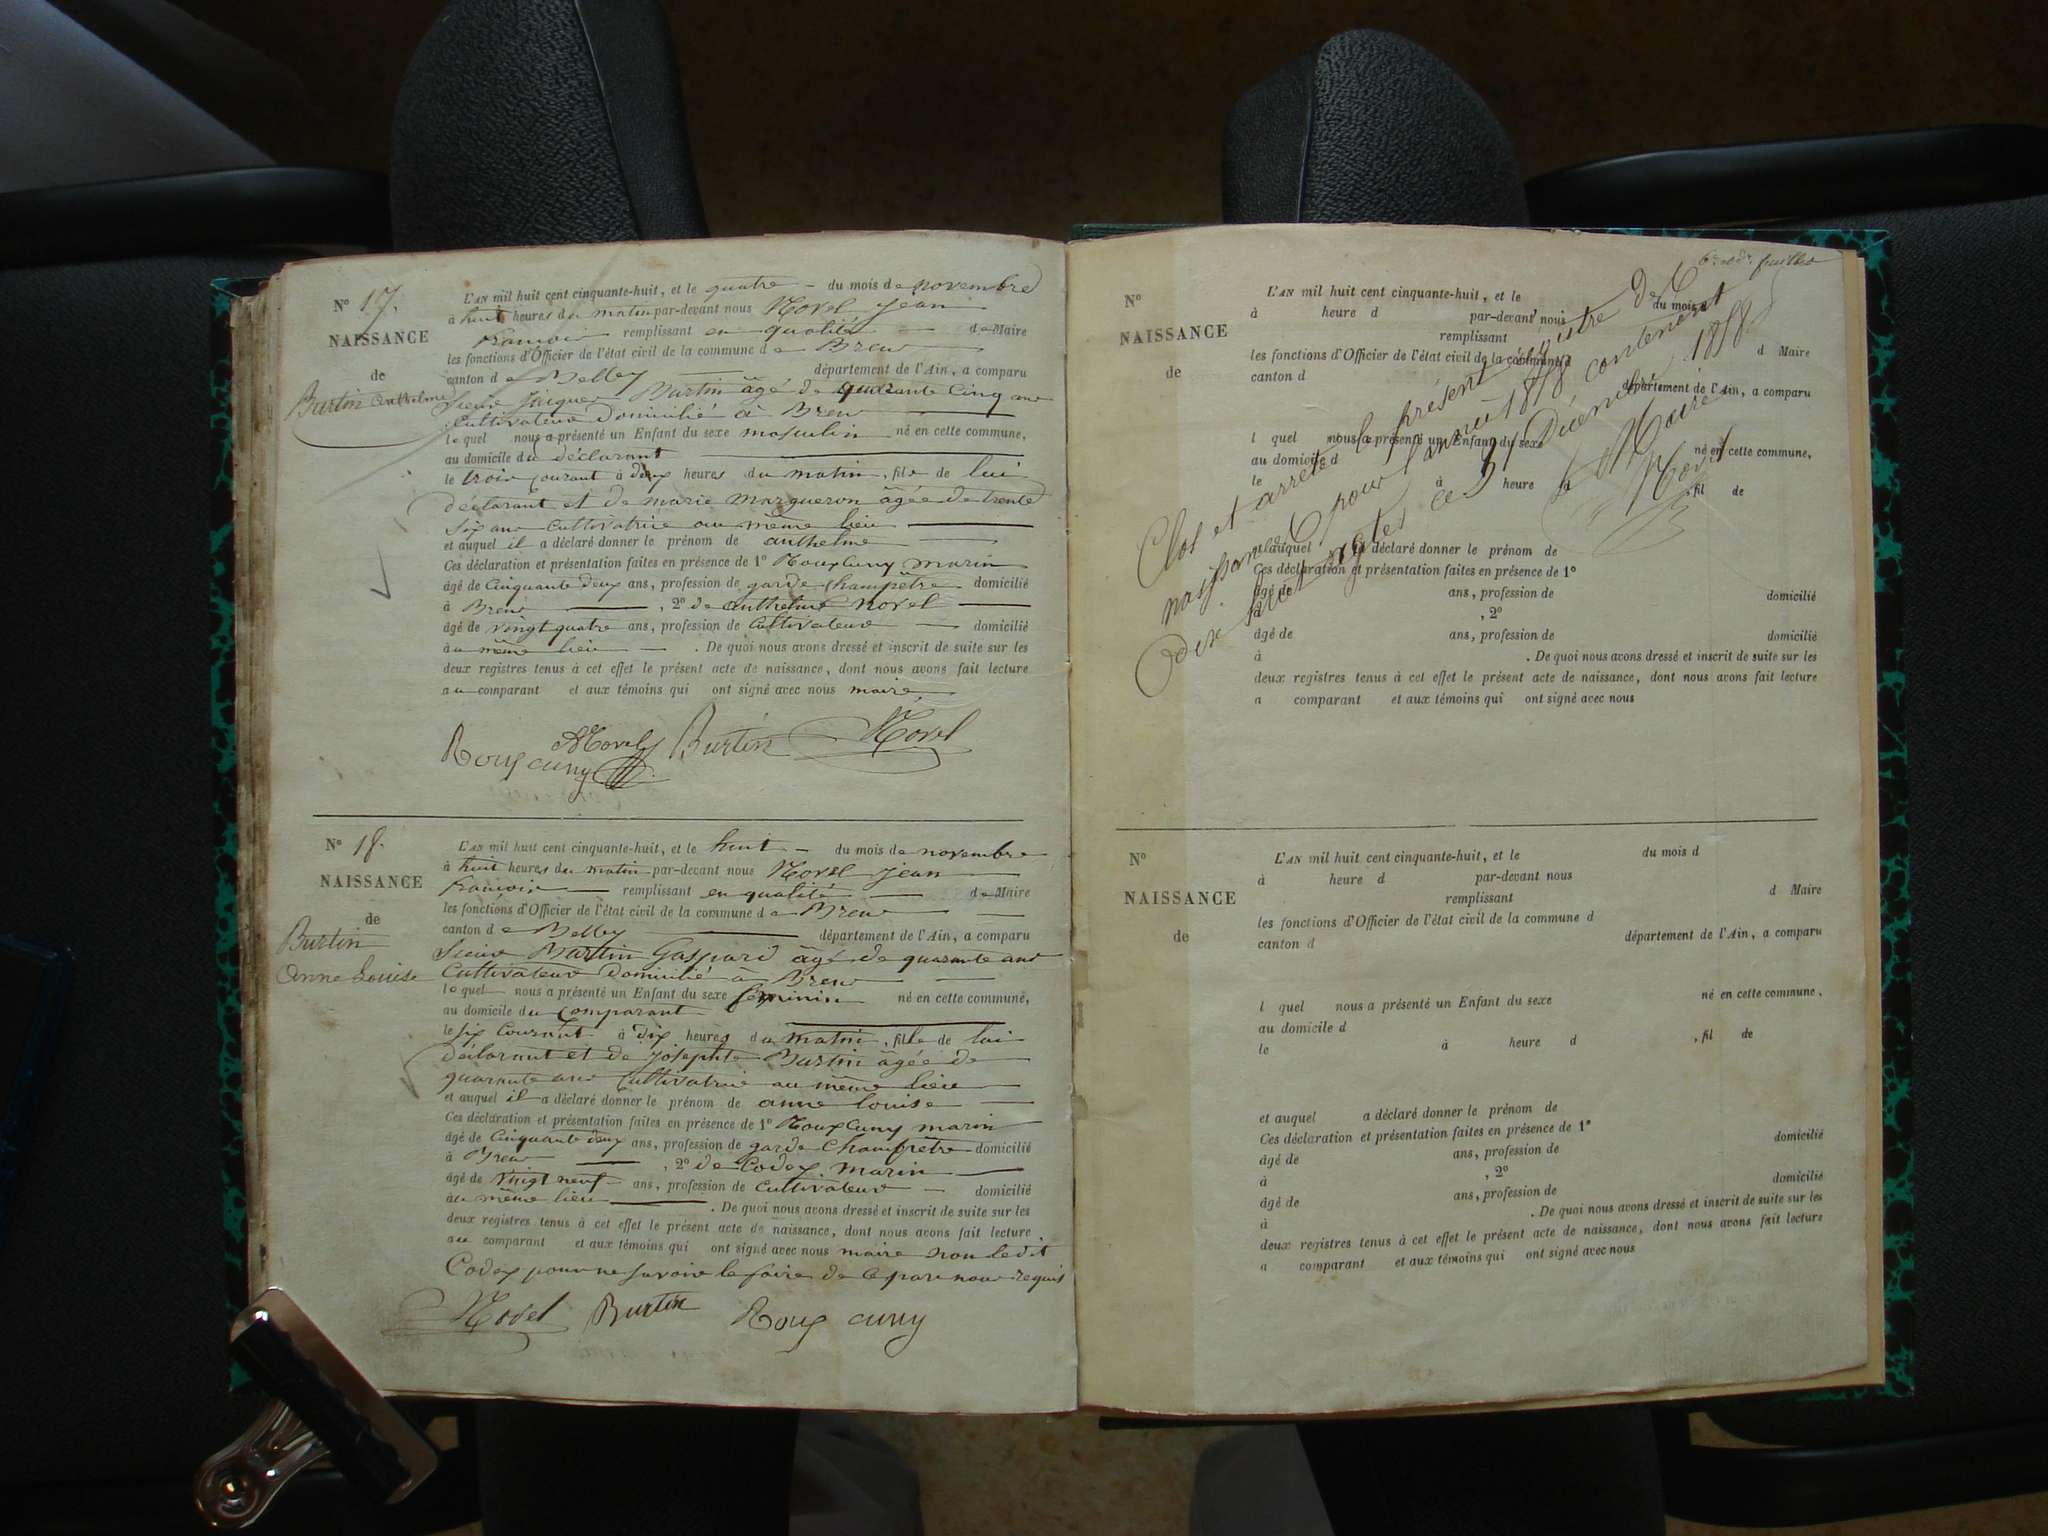 N° 17.
NAISSANCE
de
Burtin Anthelme
L'AN mil huit cent cinquante-huit, et le quatre du mois de novembre
à huit heures du matin par-devant nous Morel Jean
François remplissant en qualité de Maire
les fonctions d'Officier de l'état civil de la commune de Brens
canton de Belley département de l'Ain, a comparu
Sieur Jacques Burtin âgé de quarante cinq ans
Cultivateur Domicilié à Brens
lequel nous a présenté un Enfant du sexe masculin né en cette commune,
au domicile du déclarant
le trois courant à deux heures du matin, fils de lui
déclarant et de marie margueron âgée de trente
six ans Cultivatrice au même lieu
et auquel il a déclaré donner le prénom de anthelme
Ces déclaration et présentation faites en présence de 1° Roux Cuny marin
âgé de Cinquante deux ans, profession de garde Champêtre domicilié
à Brens , 2° de anthelme Morel
âgé de vingt quatre ans, profession de Cultivateur domicilié
au même lieu . De quoi nous avons dressé et inscrit de suite sur les
deux registres tenus à cet effet le présent acte de naissance, dont nous avons fait lecture
au comparant et aux témoins qui ont signé avec nous maire.
Roux cuny AMorel Burtin Morel
N° 18.
NAISSANCE
de
Burtin
Anne Louise
L'AN mil huit cent cinquante-huit, et le huit du mois de novembre
à huit heures du matin par-devant nous Morel Jean
François remplissant en qualité de Maire
les fonctions d'Officier de l'état civil de la commune de Brens
canton de Belley département de l'Ain, a comparu
Sieur Burtin Gaspard âgé de quarante ans
Cultivateur Domicilié à Brens
lequel nous a présenté un Enfant du sexe féminin né en cette commune,
au domicile du comparant
le six Courant à dix heures du matin, fille de lui
déclarant et de Josephte Burtin âgée de
quarante ans Cultivatrice au même lieu
et auquel il a déclaré donner le prénom de anne louise
Ces déclaration et présentation faites en présence de 1° Roux Cuny marin
âgé de Cinquante deux ans, profession de garde Champêtre domicilié
à Brens , 2° de Codex marin
âgé de vingt neuf ans, profession de Cultivateur domicilié
au même lieu . De quoi nous avons dressé et inscrit de suite sur les
deux registres tenus à cet effet le présent acte de naissance, dont nous avons fait lecture
au comparant et aux témoins qui ont signé avec nous maire non ledit
Codex pour ne savoir le faire de ce par nous requis
Morel Burtin Roux cuny
feuillet
N°
NAISSANCE
de
L'AN mil huit cent cinquante-huit, et le du mois
à heure d par-devant nous
remplissant d Maire
les fonctions d'Officier de l'état civil de la commune d
canton d département de l'Ain, a comparu
l quel nous a présenté un Enfant du sexe né en cette commune,
au domicile d
le à heure d , fil de
et auquel a déclaré donner le prénom de
Ces déclaration et présentation faites en présence de 1°
âgé de ans, profession de domicilié
à , 2°
âgé de ans, profession de domicilié
à . De quoi nous avons dressé et inscrit de suite sur les
deux registres tenus à cet effet le présent acte de naissance, dont nous avons fait lecture
a comparant et aux témoins qui ont signé avec nous
Clos et arrêté le présent registre de
naissance pour l'année 1858 contenant
dix huit actes ce 31 Décembre 1858.
le Maire
Morel
N°
NAISSANCE
de
L'AN mil huit cent cinquante-huit, et le du mois d
à heure d par-devant nous
remplissant d Maire
les fonctions d'Officier de l'état civil de la commune d
canton d département de l'Ain, a comparu
l quel nous a présenté un Enfant du sexe né en cette commune,
au domicile d
le à heure d , fil de
et auquel a déclaré donner le prénom de
Ces déclaration et présentation faites en présence de 1°
âgé de ans, profession de domicilié
à , 2°
âgé de ans, profession de domicilié
à . De quoi nous avons dressé et inscrit de suite sur les
deux registres tenus à cet effet le présent acte de naissance, dont nous avons fait lecture
a comparant et aux témoins qui ont signé avec nous